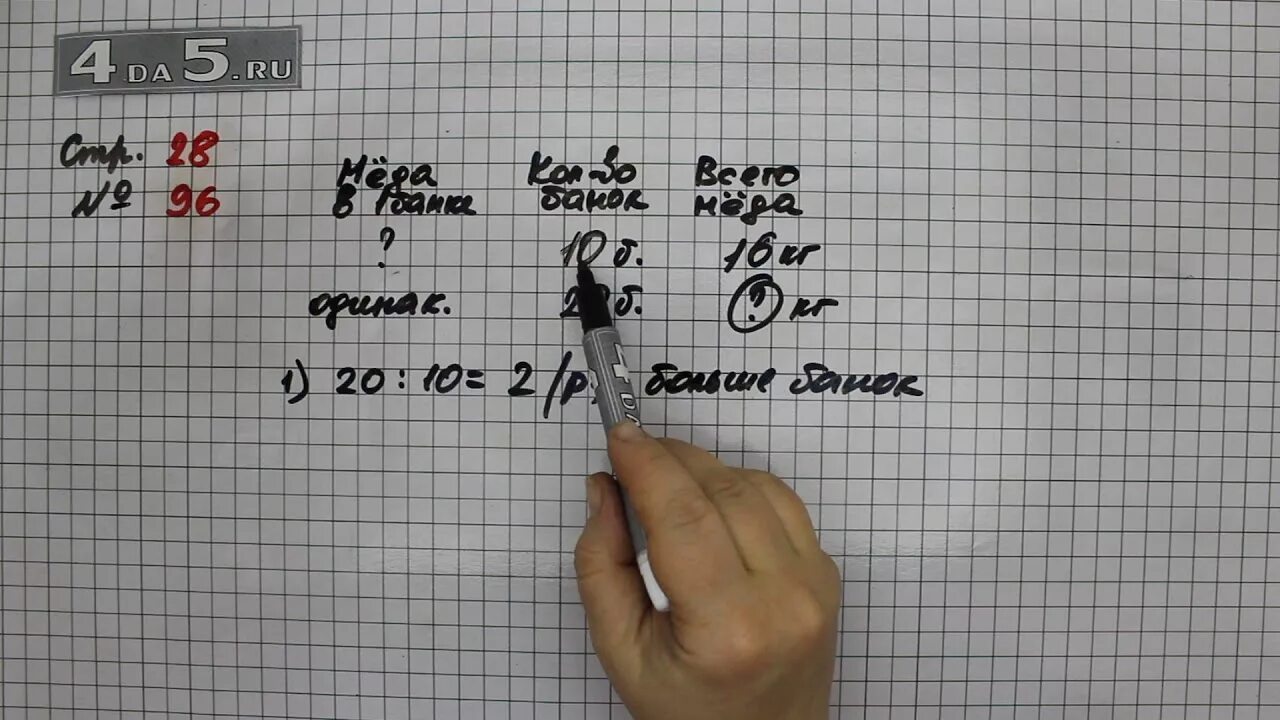 4DA5.RU
Стр. 28
№ 96
Мёда в 1 банке
Кол-во банок
Всего мёда
? 10 б. 16 кг
одинак. б. ? кг
1) 20 : 10 = 2 /р больше банок
4 DA